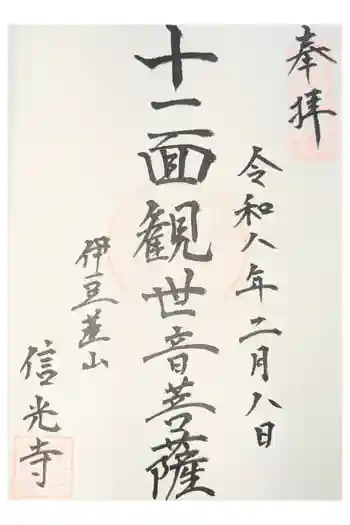 奉拝
令和八年二月八日
十一面観世音菩薩
伊豆韮山
信光寺